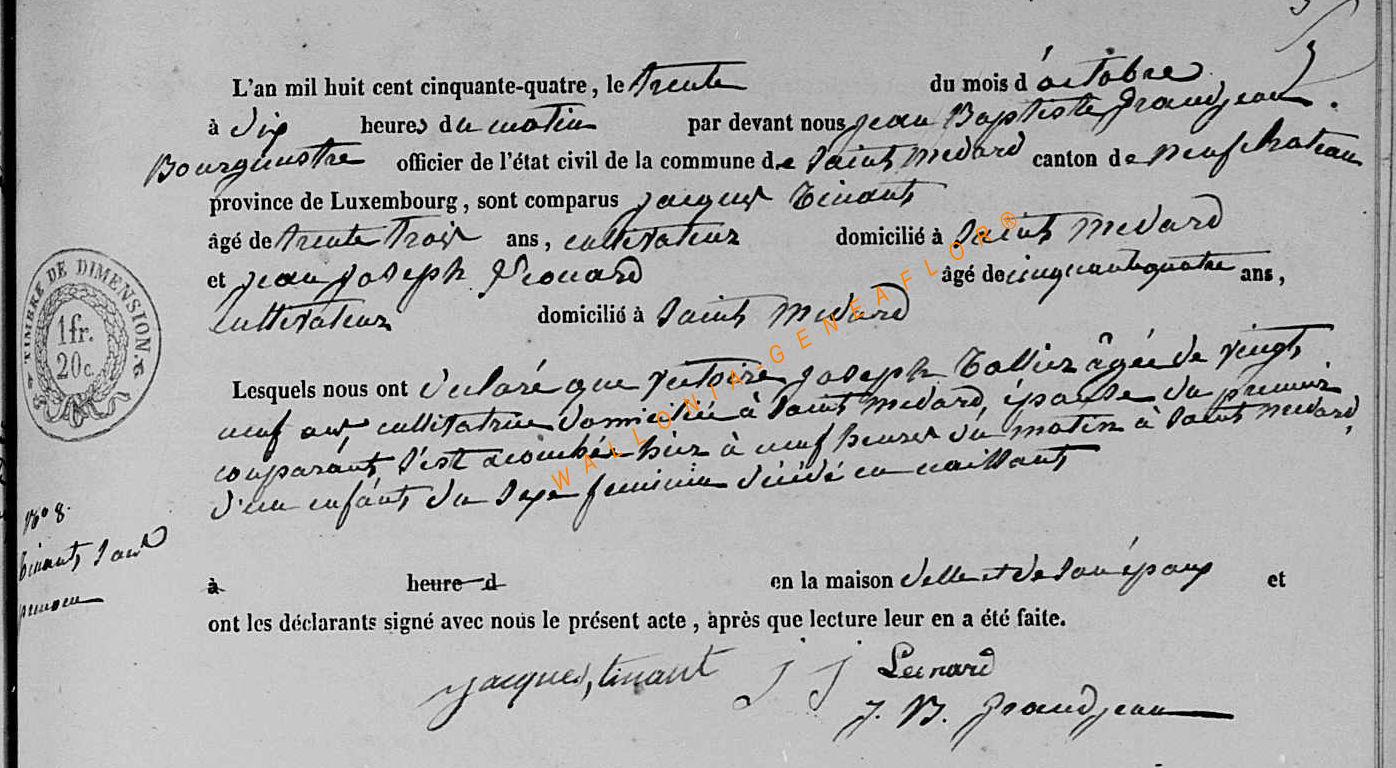 L'an mil huit cent cinquante-quatre, le trente du mois d'octobre,
à dix heures du matin par devant nous jean Baptiste Grandjean.
Bourgmestre officier de l'état civil de la commune de Saint Medard canton de neufchateau
province de Luxembourg, sont comparus jacques Tinant
âgé de trente trois ans, cultivateur domicilié à Saint Medard
et jean joseph âgé de cinquante quatre ans,
cultivateur domicilié à Saint Medard
TIMBRE DE DIMENSION.
1fr.
20c.
Lesquels nous ont declaré que joseph âgée de vingt
neuf ans, cultivatrice domiciliée à Saint Medard, épouse du premier
comparant, s'est acouchée hier à neuf heures du matin à Saint Medard,
d'un enfant du sexe feminin décédé en naissant
No 8.
tinant, Sans
prenom
à heure d en la maison d'elle et de son époux et
ont les déclarants signé avec nous le présent acte, après que lecture leur en a été faite.
jacques, tinant J J
J. B. Grandjean
WALLONIA-GENEAFLOR®